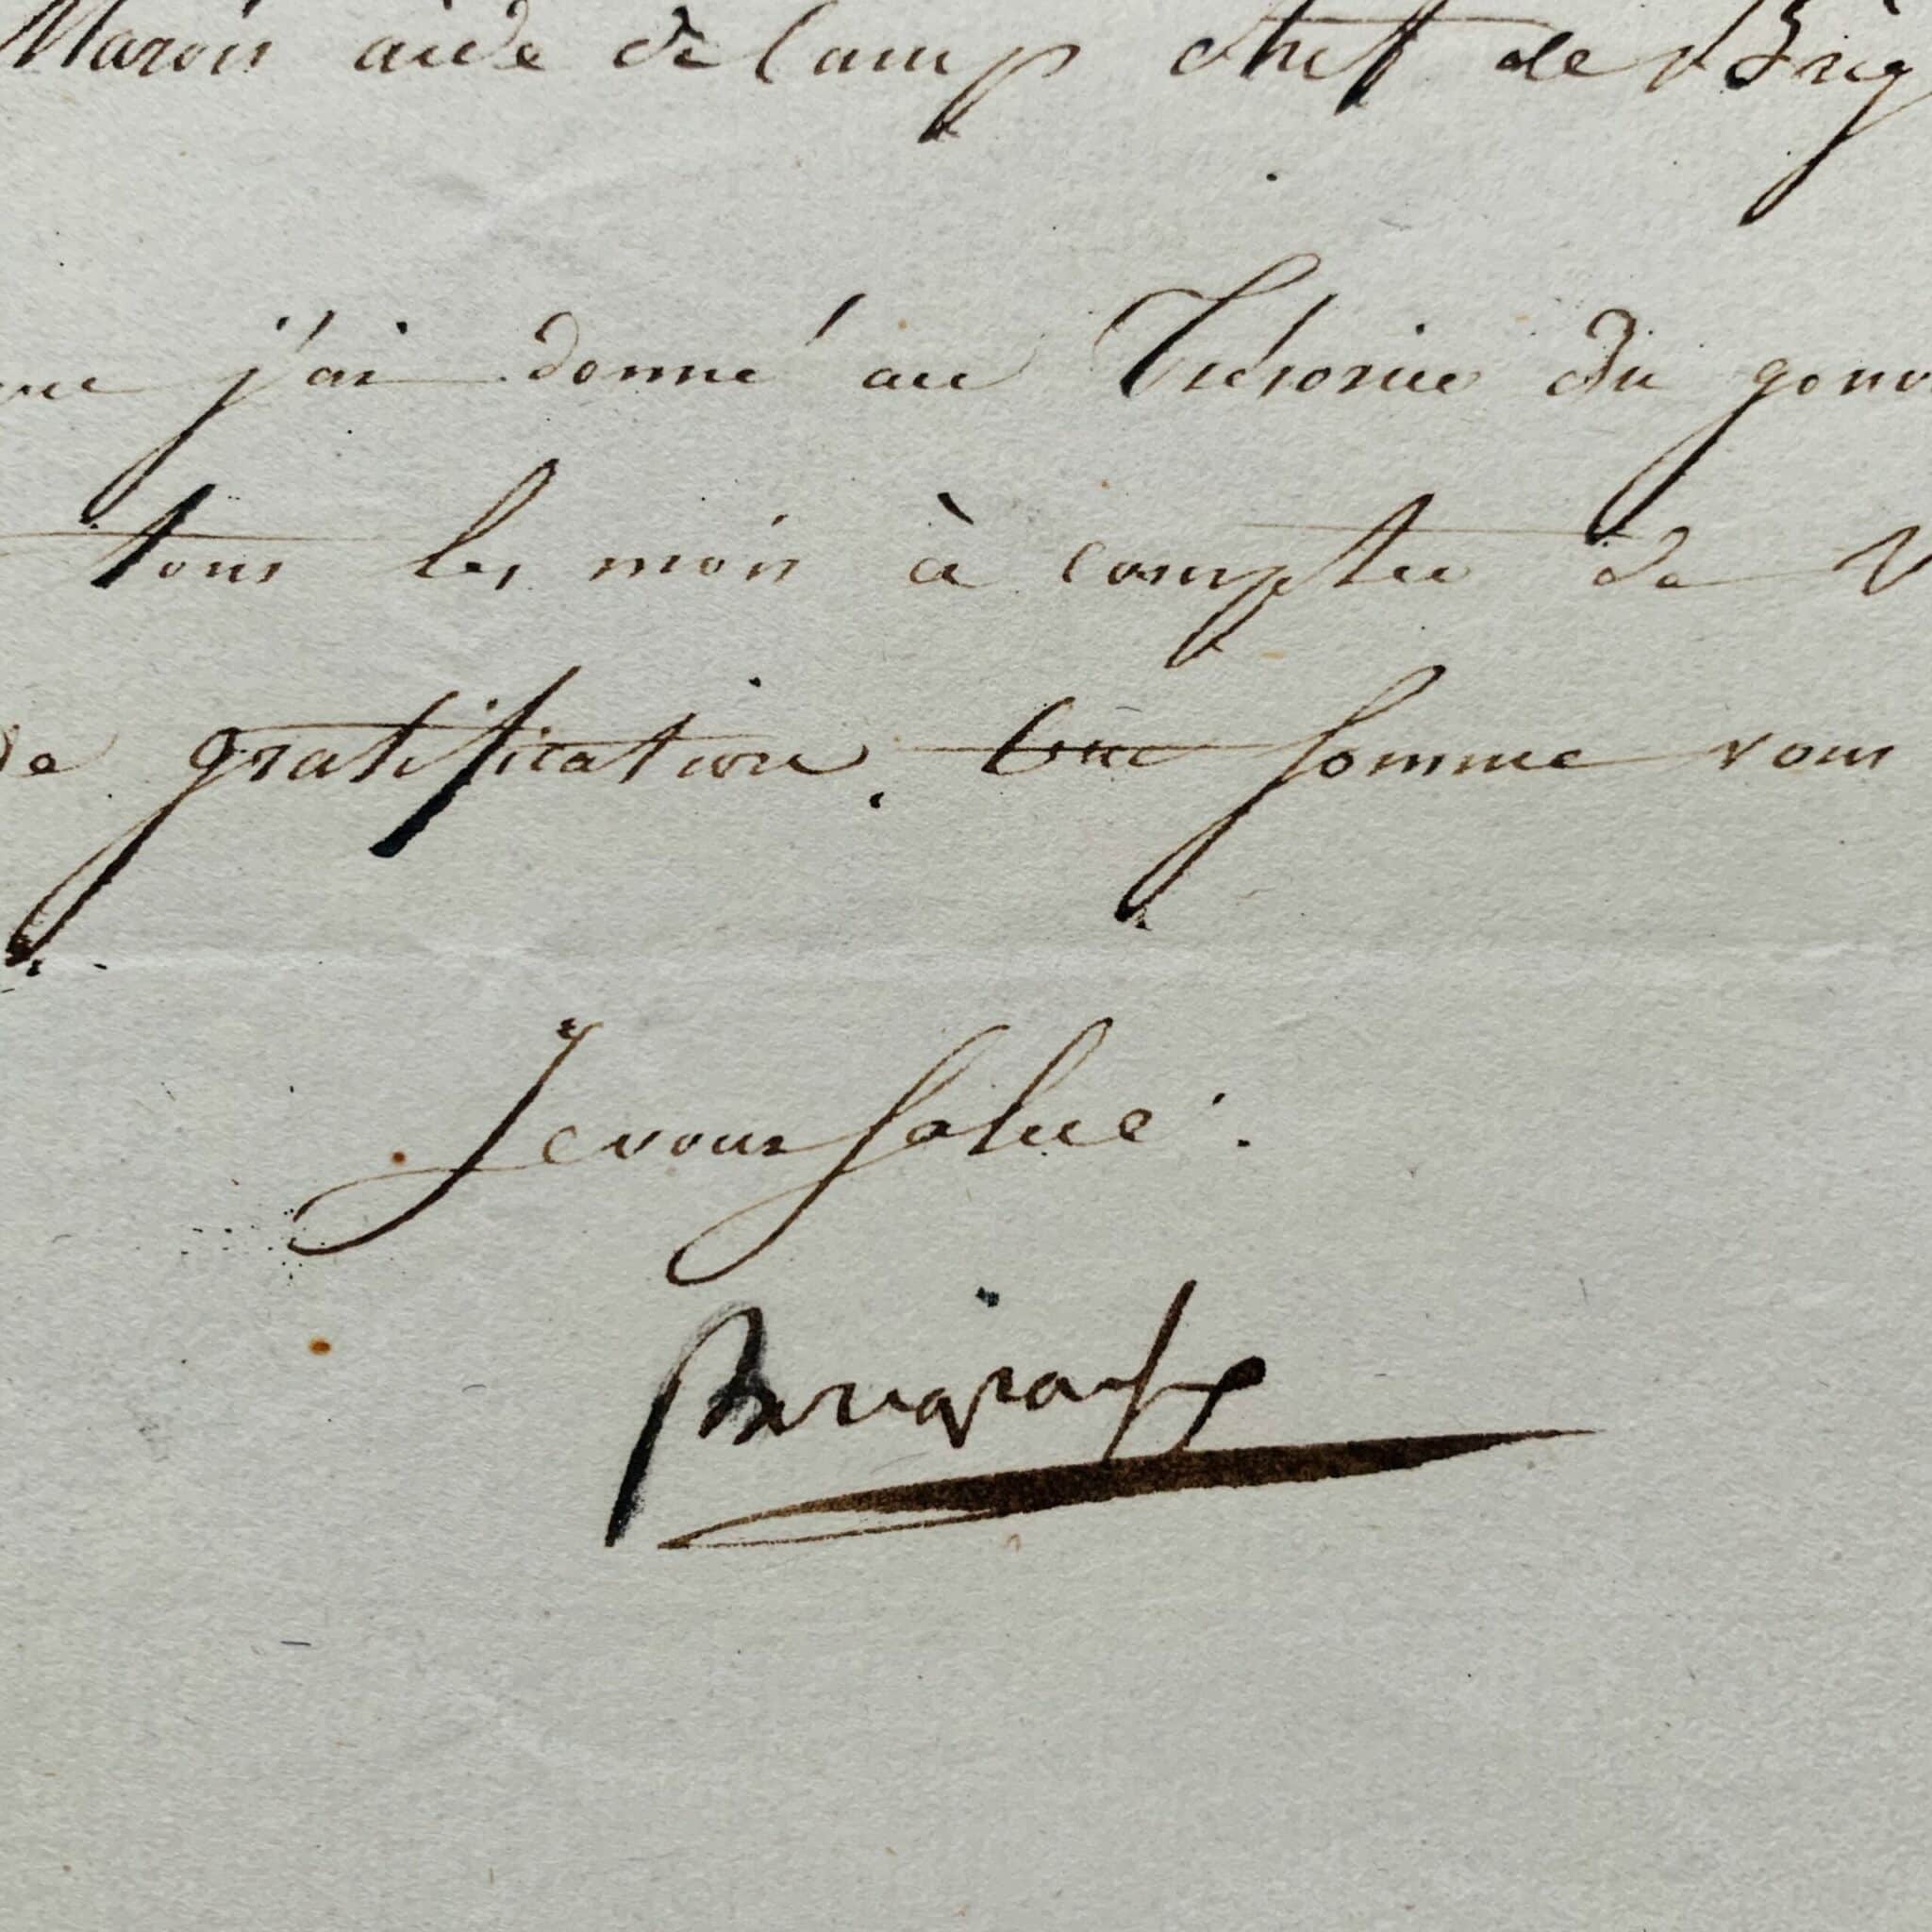 Maron aide de Camp chef de Brig
que j'ai donné au Trésorier du gouv
tous les mois à compter de V
de gratification. Une Somme vous
Je vous Salue.